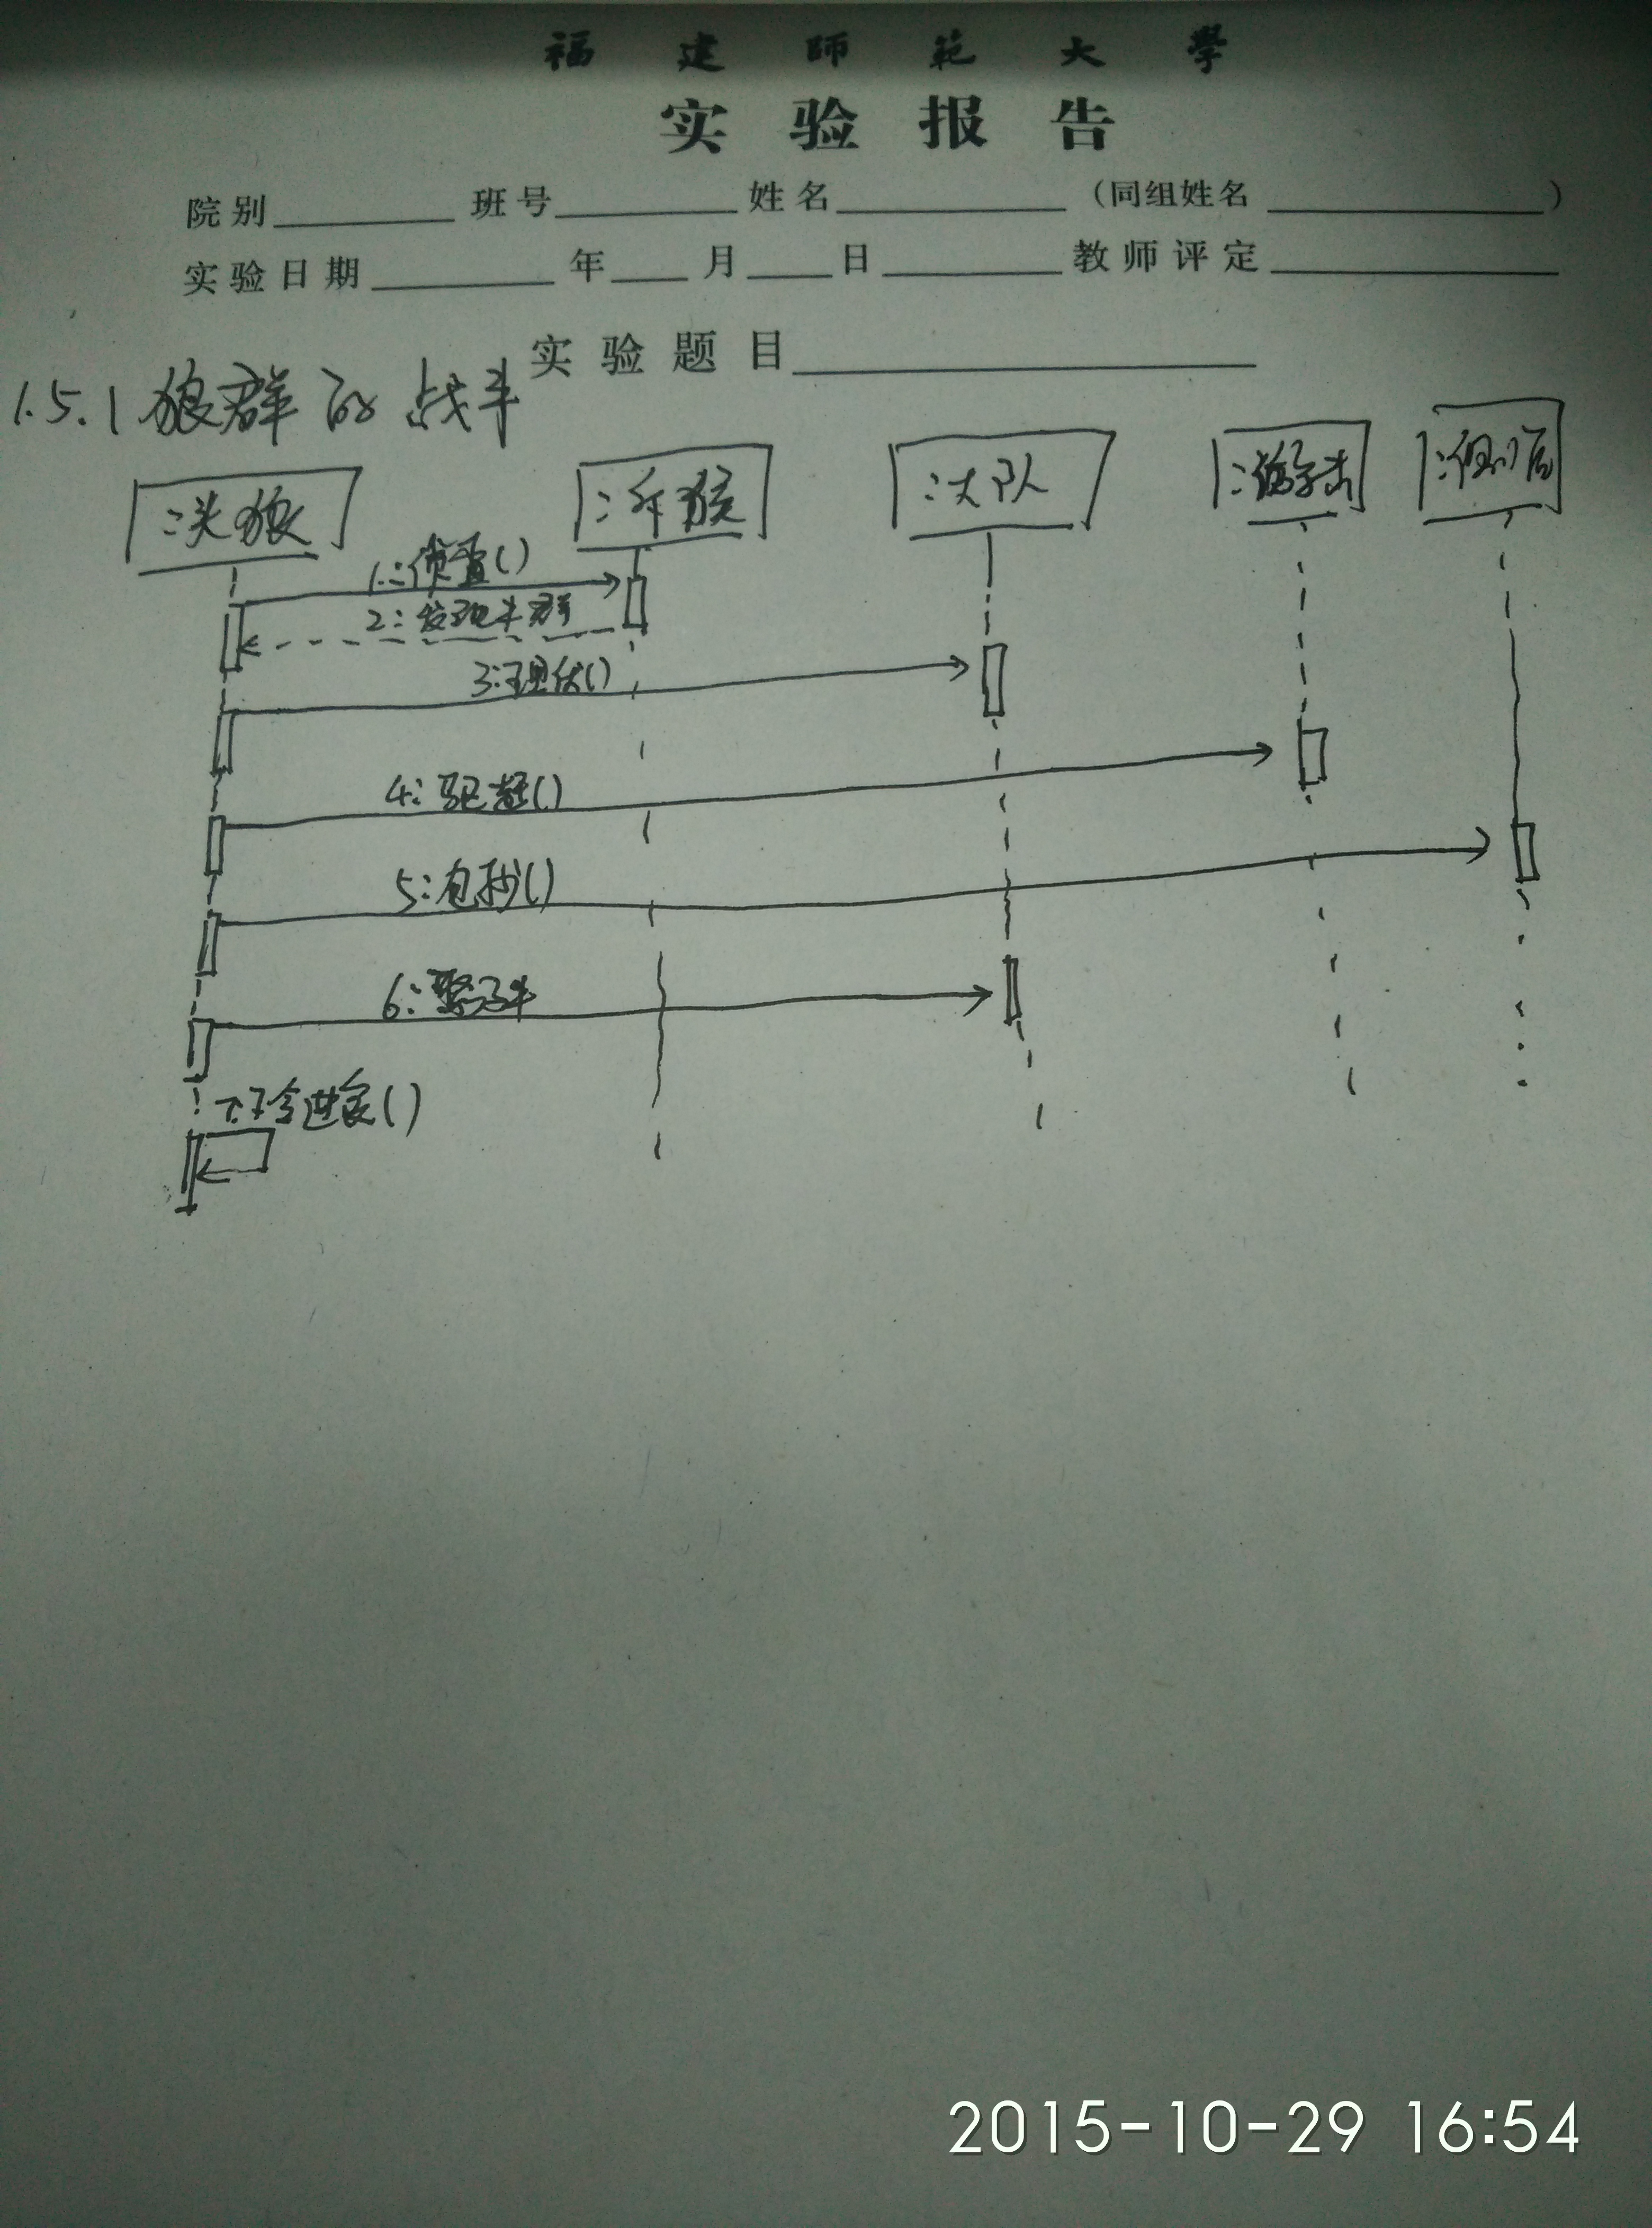 福建師範大學
实验报告
院别 班号 姓名 (同组姓名 )
实验日期 年 月 日 教师评定
实验题目
1.5.1 狼群的战斗
:头狼 :斥猴 :大队 :游击
1.:侦查()
2:发现牛群
3:埋伏()
4:驱赶()
5:包抄()
6:
7:命令进食()
2015-10-29 16:54